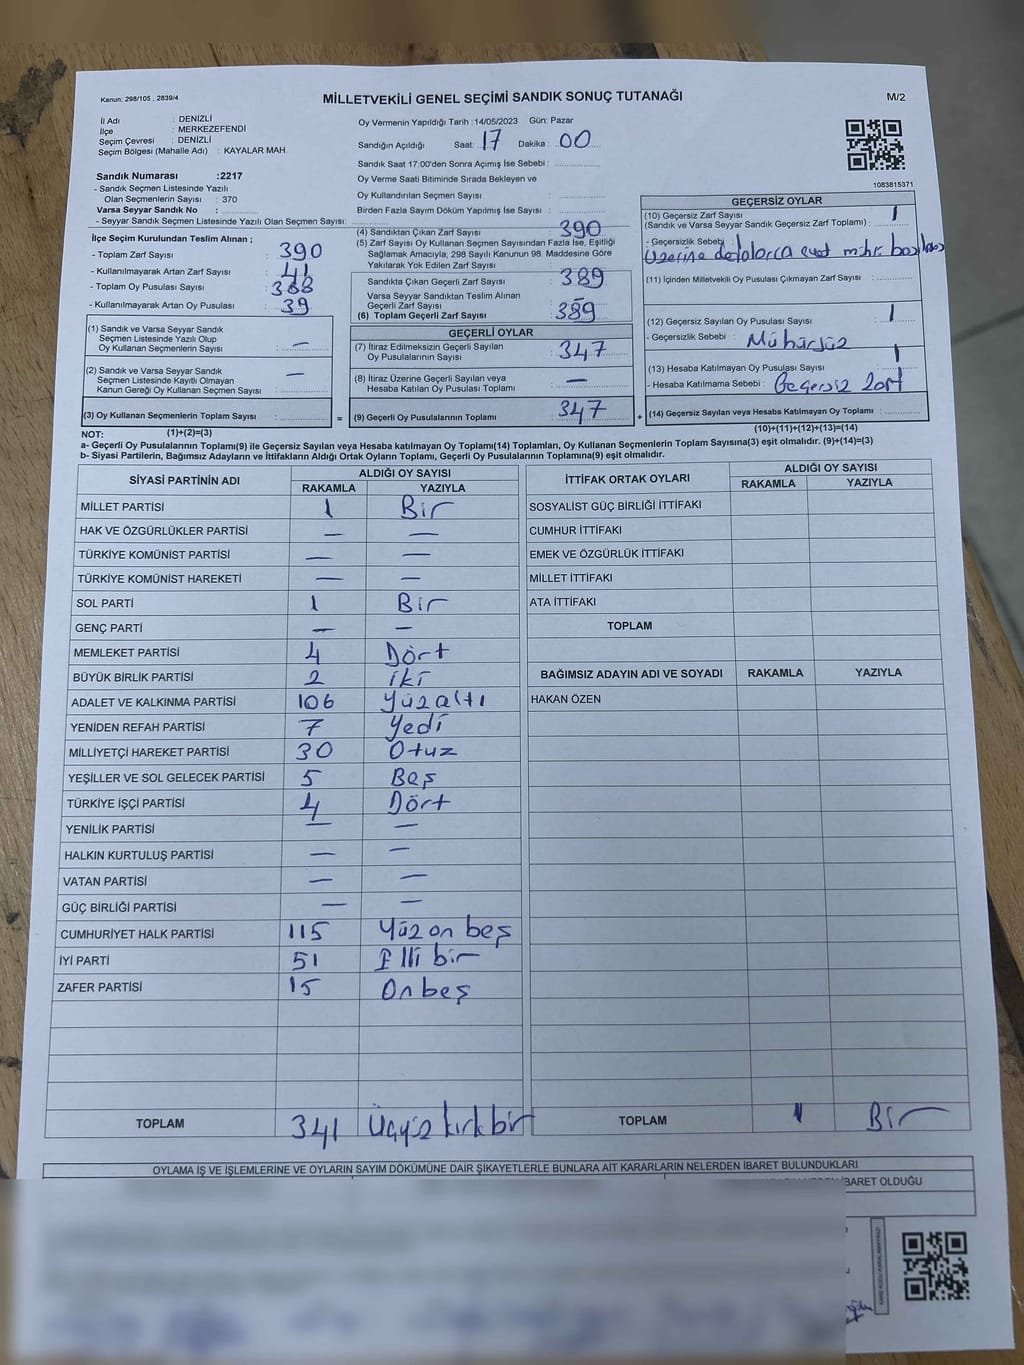 Kanun: 298/105 , 2839/4
MİLLETVEKİLİ GENEL SEÇİMİ SANDIK SONUÇ TUTANAĞI
M/2
İl Adı : DENİZLİ
İlçe : MERKEZEFENDİ
Seçim Çevresi : DENİZLİ
Seçim Bölgesi (Mahalle Adı) : KAYALAR MAH.
Oy Vermenin Yapıldığı Tarih :14/05/2023 Gün: Pazar
Sandığın Açıldığı Saat: 17 Dakika: 00
Sandık Saat 17:00'den Sonra Açılmış İse Sebebi :
Oy Verme Saati Bitiminde Sırada Bekleyen ve
Oy Kullandırılan Seçmen Sayısı :
Birden Fazla Sayım Döküm Yapılmış İse Sayısı :
1083815371
Sandık Numarası :2217
- Sandık Seçmen Listesinde Yazılı
Olan Seçmenlerin Sayısı : 370
Varsa Seyyar Sandık No :
- Seyyar Sandık Seçmen Listesinde Yazılı Olan Seçmen Sayısı:
İlçe Seçim Kurulundan Teslim Alınan ;
- Toplam Zarf Sayısı : 390
- Kullanılmayarak Artan Zarf Sayısı : 41
- Toplam Oy Pusulası Sayısı : 388
- Kullanılmayarak Artan Oy Pusulası : 39
(1) Sandık ve Varsa Seyyar Sandık
Seçmen Listesinde Yazılı Olup
Oy Kullanan Seçmenlerin Sayısı : —
(2) Sandık ve Varsa Seyyar Sandık
Seçmen Listesinde Kayıtlı Olmayan
Kanun Gereği Oy Kullanan Seçmen Sayısı : —
(3) Oy Kullanan Seçmenlerin Toplam Sayısı :
(1)+(2)=(3)
(4) Sandıktan Çıkan Zarf Sayısı : 390
(5) Zarf Sayısı Oy Kullanan Seçmen Sayısından Fazla İse, Eşitliği
Sağlamak Amacıyla, 298 Sayılı Kanunun 98. Maddesine Göre
Yakılarak Yok Edilen Zarf Sayısı :
Sandıkta Çıkan Geçerli Zarf Sayısı : 389
Varsa Seyyar Sandıktan Teslim Alınan
Geçerli Zarf Sayısı :
(6) Toplam Geçerli Zarf Sayısı : 389
GEÇERLİ OYLAR
(7) İtiraz Edilmeksizin Geçerli Sayılan
Oy Pusulalarının Sayısı : 347
(8) İtiraz Üzerine Geçerli Sayılan veya
Hesaba Katılan Oy Pusulası Toplamı : —
= (9) Geçerli Oy Pusulalarının Toplamı : 347
GEÇERSİZ OYLAR
(10) Geçersiz Zarf Sayısı
(Sandık ve Varsa Seyyar Sandık Geçersiz Zarf Toplamı) : 1
- Geçersizlik Sebebi :
Üzerine defalarca evet mühr
(11) İçinden Milletvekili Oy Pusulası Çıkmayan Zarf Sayısı :
(12) Geçersiz Sayılan Oy Pusulası Sayısı : 1
- Geçersizlik Sebebi : Mühürsüz
(13) Hesaba Katılmayan Oy Pusulası Sayısı : 1
- Hesaba Katılmama Sebebi : Geçersiz zarf
+ (14) Geçersiz Sayılan veya Hesaba Katılmayan Oy Toplamı :
(10)+(11)+(12)+(13)=(14)
NOT:
a- Geçerli Oy Pusulalarının Toplamı(9) ile Geçersiz Sayılan veya Hesaba katılmayan Oy Toplamı(14) Toplamları, Oy Kullanan Seçmenlerin Toplam Sayısına(3) eşit olmalıdır. (9)+(14)=(3)
b- Siyasi Partilerin, Bağımsız Adayların ve İttifakların Aldığı Ortak Oyların Toplamı, Geçerli Oy Pusulalarının Toplamına(9) eşit olmalıdır.
SİYASİ PARTİNİN ADI
ALDIĞI OY SAYISI
RAKAMLA YAZIYLA
MİLLET PARTİSİ 1 Bir
HAK VE ÖZGÜRLÜKLER PARTİSİ — —
TÜRKİYE KOMÜNİST PARTİSİ — —
TÜRKİYE KOMÜNİST HAREKETİ — —
SOL PARTİ 1 Bir
GENÇ PARTİ — —
MEMLEKET PARTİSİ 4 Dört
BÜYÜK BİRLİK PARTİSİ 2 iki
ADALET VE KALKINMA PARTİSİ 106 Yüzaltı
YENİDEN REFAH PARTİSİ 7 Yedi
MİLLİYETÇİ HAREKET PARTİSİ 30 Otuz
YEŞİLLER VE SOL GELECEK PARTİSİ 5 Beş
TÜRKİYE İŞÇİ PARTİSİ 4 Dört
YENİLİK PARTİSİ — —
HALKIN KURTULUŞ PARTİSİ — —
VATAN PARTİSİ — —
GÜÇ BİRLİĞİ PARTİSİ — —
CUMHURİYET HALK PARTİSİ 115 Yüz on beş
İYİ PARTİ 51 Elli bir
ZAFER PARTİSİ 15 Onbeş
TOPLAM 341 Üçyüz kırk bir
İTTİFAK ORTAK OYLARI
ALDIĞI OY SAYISI
RAKAMLA YAZIYLA
SOSYALİST GÜÇ BİRLİĞİ İTTİFAKI
CUMHUR İTTİFAKI
EMEK VE ÖZGÜRLÜK İTTİFAKI
MİLLET İTTİFAKI
ATA İTTİFAKI
TOPLAM
BAĞIMSIZ ADAYIN ADI VE SOYADI RAKAMLA YAZIYLA
HAKAN ÖZEN
TOPLAM 1 Bir
OYLAMA İŞ VE İŞLEMLERİNE VE OYLARIN SAYIM DÖKÜMÜNE DAİR ŞİKAYETLERLE BUNLARA AİT KARARLARIN NELERDEN İBARET BULUNDUKLARI
İBARET OLDUĞU